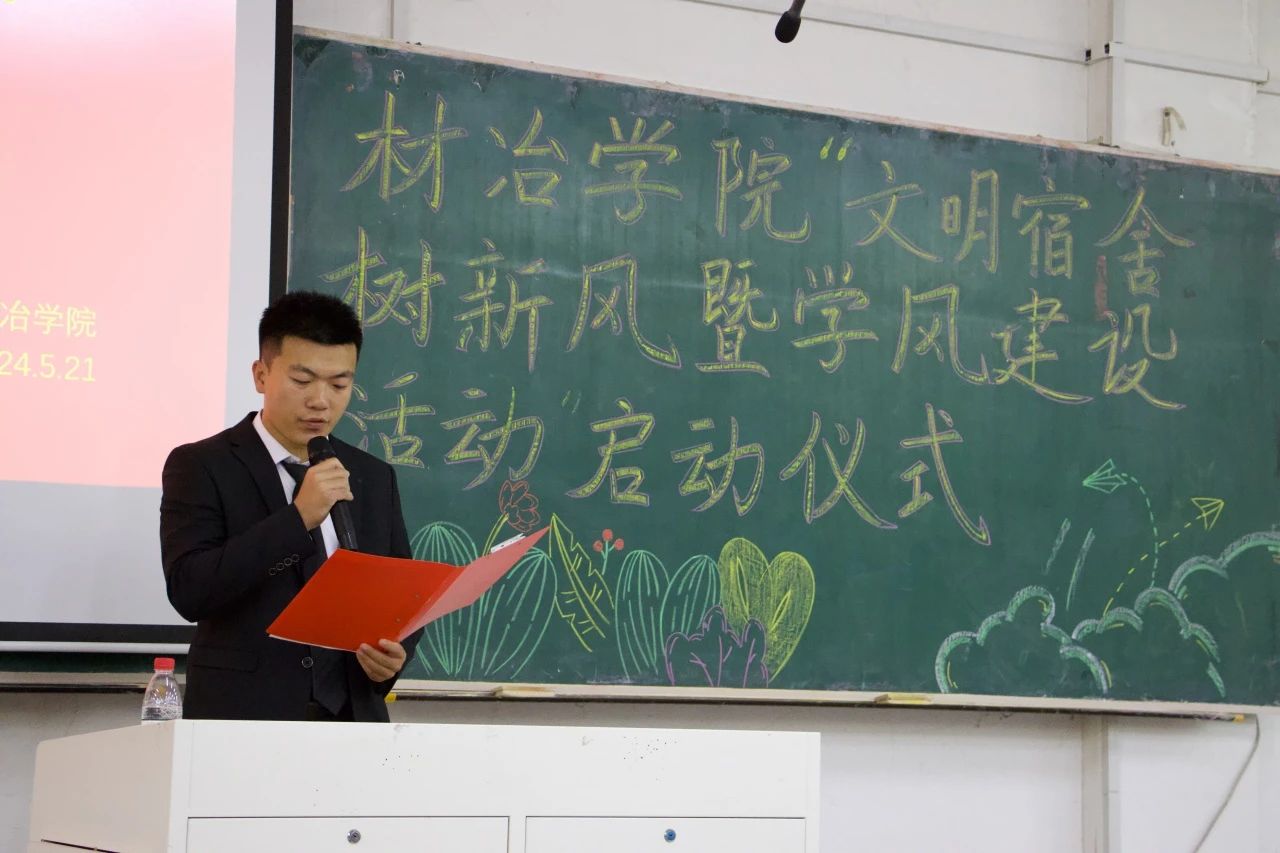 冶学院
24.5.21
材冶学院“文明宿舍
树新风暨学风建设
活动”启动仪式